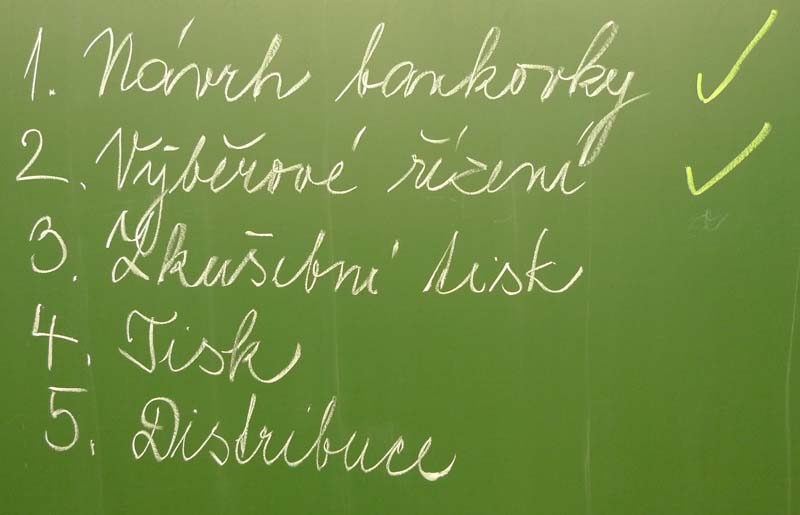 1. Návrh bankovky ✓
2. Výběrové řízení ✓
3. Zkušební tisk
4. Tisk
5. Distribuce